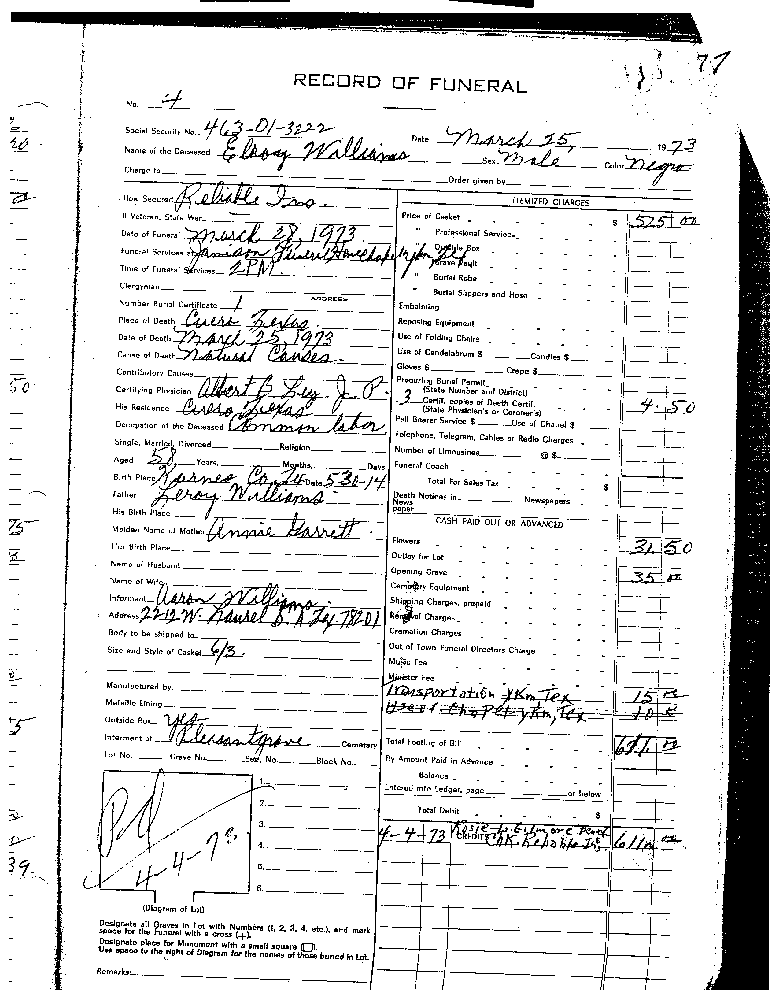 77
RECORD OF FUNERAL
No. 4
Social Security No. 463-01-3222
Date March 25, 1973
Name of the Deceased Elroy Williams Sex Male Color Negro
Charge to Order given by
How Secured Reliable Ins.
If Veteran, State War
Date of Funeral March 28, 1973
Funeral Services at Jamison Funeral Home Chapel
Time of Funeral Services 2 PM
Clergyman
ADDRESS
Number Burial Certificate 1
Place of Death Cuero Texas
Date of Death March 25, 1973
Cause of Death Natural Causes
Contributory Causes
Certifying Physician Albert B Ley J. P.
His Residence Cuero, Texas
Occupation of the Deceased Common labor
Single, Married, Divorced Religion
Aged 58 Years, Months, Days
Birth Place Karnes Co, Date 5-30-14
Father Leroy Williams
His Birth Place
Maiden Name of Mother Annie Garrett
Her Birth Place
Name of Husband
Name of Wife
Informant Aaron Williams
Address 2212 W. Laurel S. A Tex. 78201
Body to be shipped to
Size and Style of Casket 6/3
Manufactured by
Outside Box yes
Interment at Pleasantgrove Cemetery
Lot No. Grave No. Sec. No. Block No.
1.
2.
3.
4.
5.
6.
Pd
4-4-73
(Diagram of Lot)
Designate all Graves in Lot with Numbers (1, 2, 3, 4, etc.), and mark
space for the funeral with a cross (+).
Designate place for Monument with a small square (□).
Use space to the right of Diagram for the names of those buried in Lot.
Remarks
ITEMIZED CHARGES
Price of Casket $ 525 00
" Professional Service
" Outside Box
" Grave Vault
" Burial Robe
" Burial Slippers and Hose
Embalming
Reposing Equipment
Use of Folding Chairs
Use of Candelabrum $ Candles $
Gloves $ Crepe $
Procuring Burial Permit
(State Number and District)
3 Certif. copies of Death Certif.
(State Physician's or Coroner's) 4.50
Pall Bearer Service $ Use of Chapel $
Telephone, Telegram, Cables or Radio Charges
Number of Limousines @ $
Funeral Coach
Total For Sales Tax $
Death Notices in Newspapers
News
paper
CASH PAID OUT OR ADVANCED
Flowers 31 50
Outlay for Lot
Opening Grave 35 00
Cemetery Equipment
Shipping Charges, prepaid
Removal Charges
Cremation Charges
Out of Town Funeral Directors Charge
Music Fee
Minister Fee
Transportation Tex 15 00
Use of Chapel Tex 10 00
Total Footing of Bill 611 00
By Amount Paid in Advance
Balance
Entered into Ledger, page or below
Total Debit $
CREDITS
4-4-73 Reliable Ins 611 00